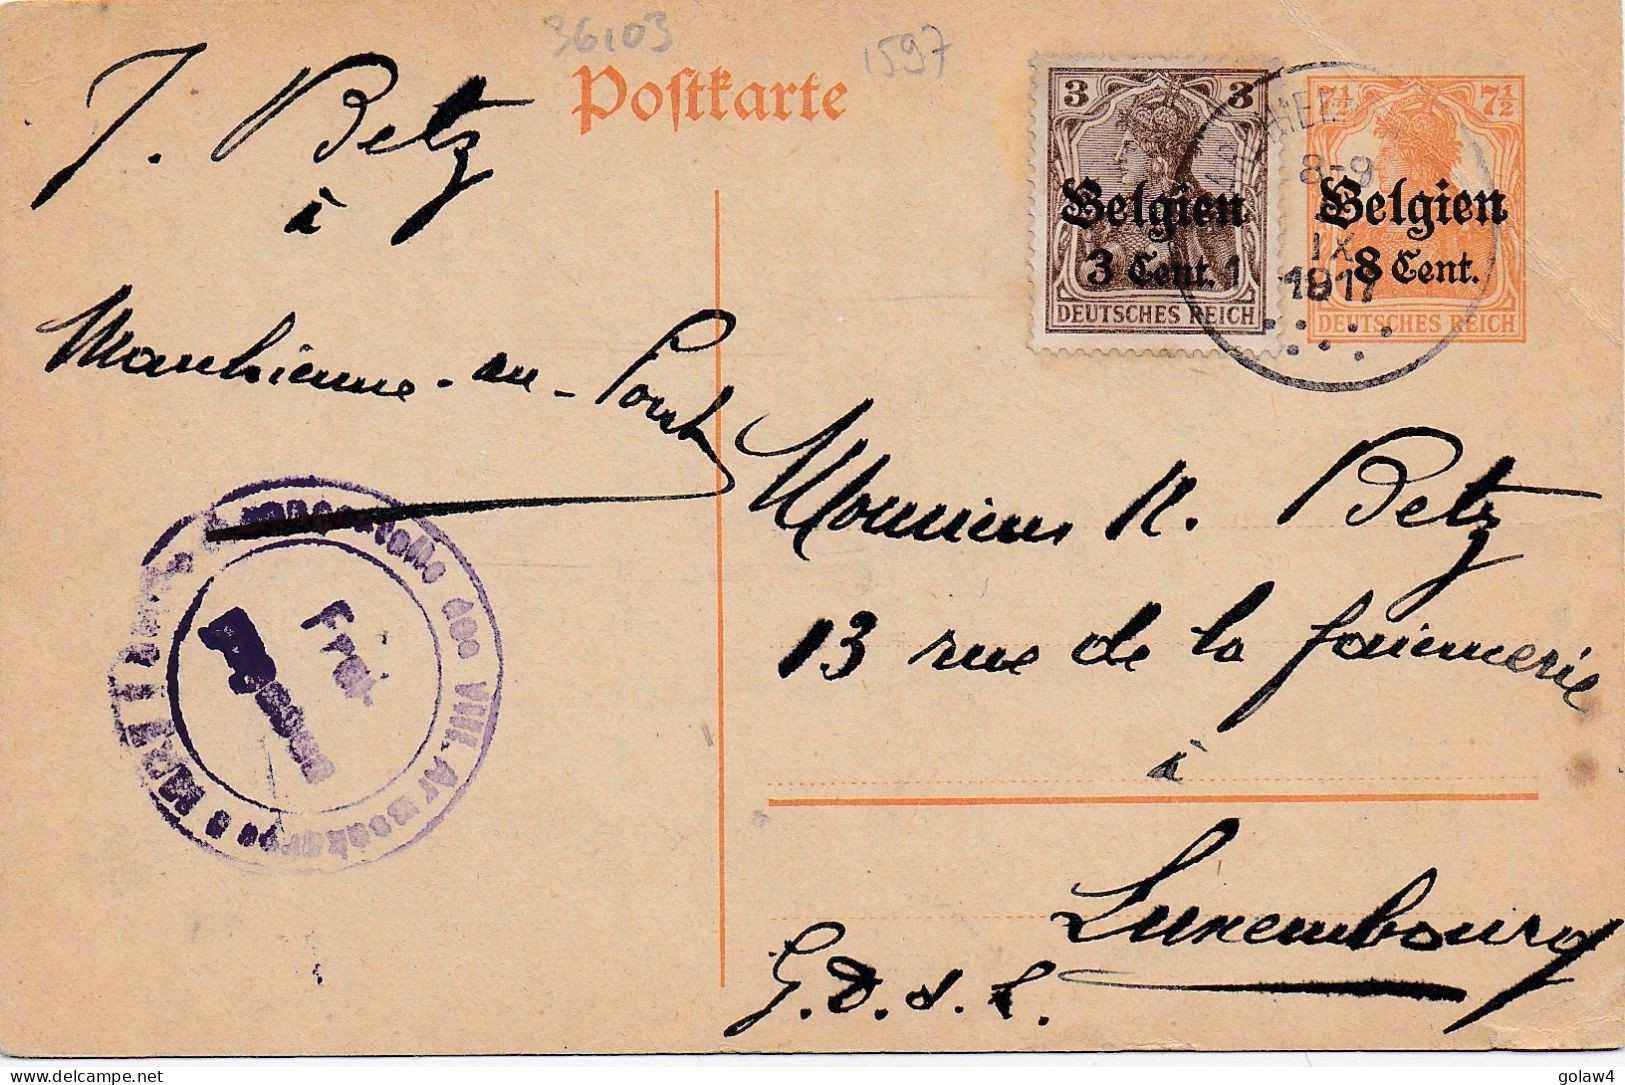 36103
1597
Postkarte
J. Betz
à
Marchienne-au-Pont
3 3
Belgien
3 Cent.
DEUTSCHES REICH
7½ 7½
Belgien
8 Cent.
DEUTSCHES REICH
8-9
IX
1917
des VIII. Armeekorps
Frei
gegeben
Monsieur N. Betz
13 rue de la faiencerie
à
Luxembourg
G.D.d.L.
delcampe.net
golaw4